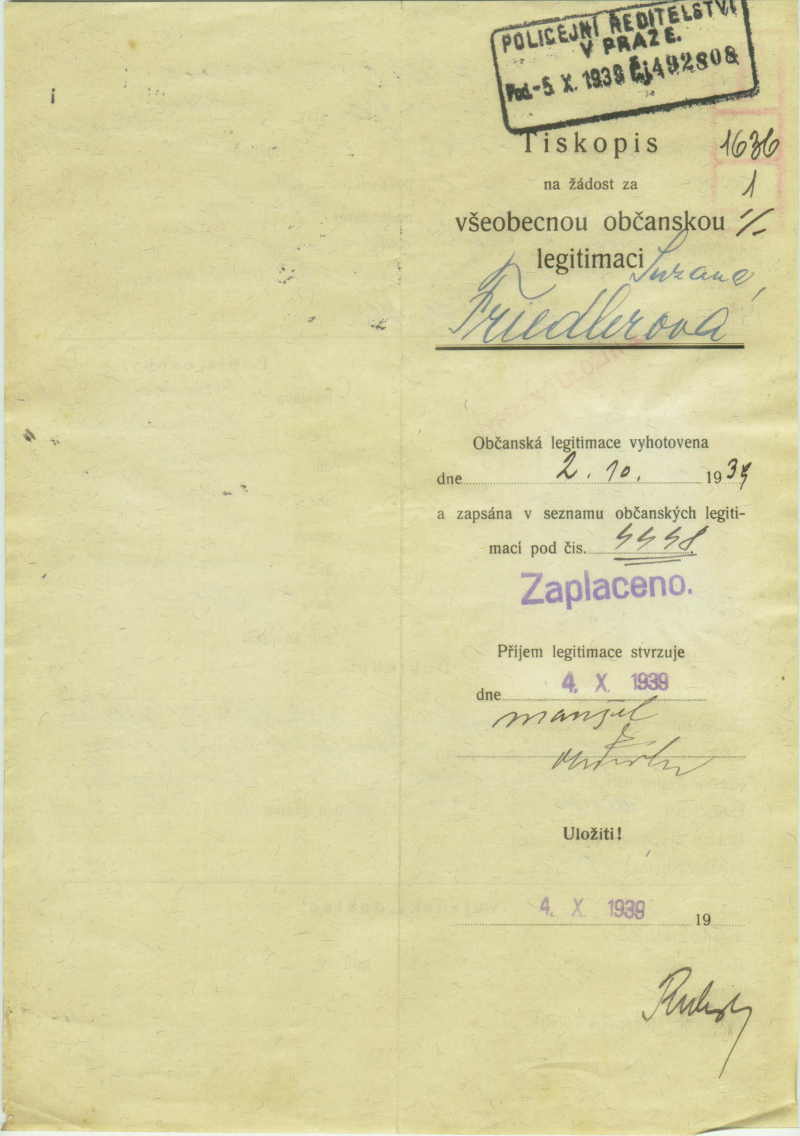 POLICEJNÍ ŘEDITELSTVÍ
V PRAZE.
Pod.-5. X. 1939 Čj 492808
Tiskopis
1636
na žádost za
1
všeobecnou občanskou
legitimaci
Friedlerová
Občanská legitimace vyhotovena
dne 2. 10. 1939
a zapsána v seznamu občanských legiti-
mací pod čis. 4448.
Zaplaceno.
Příjem legitimace stvrzuje
dne 4. X. 1939
manžel
Uložiti!
4. X. 1939 19